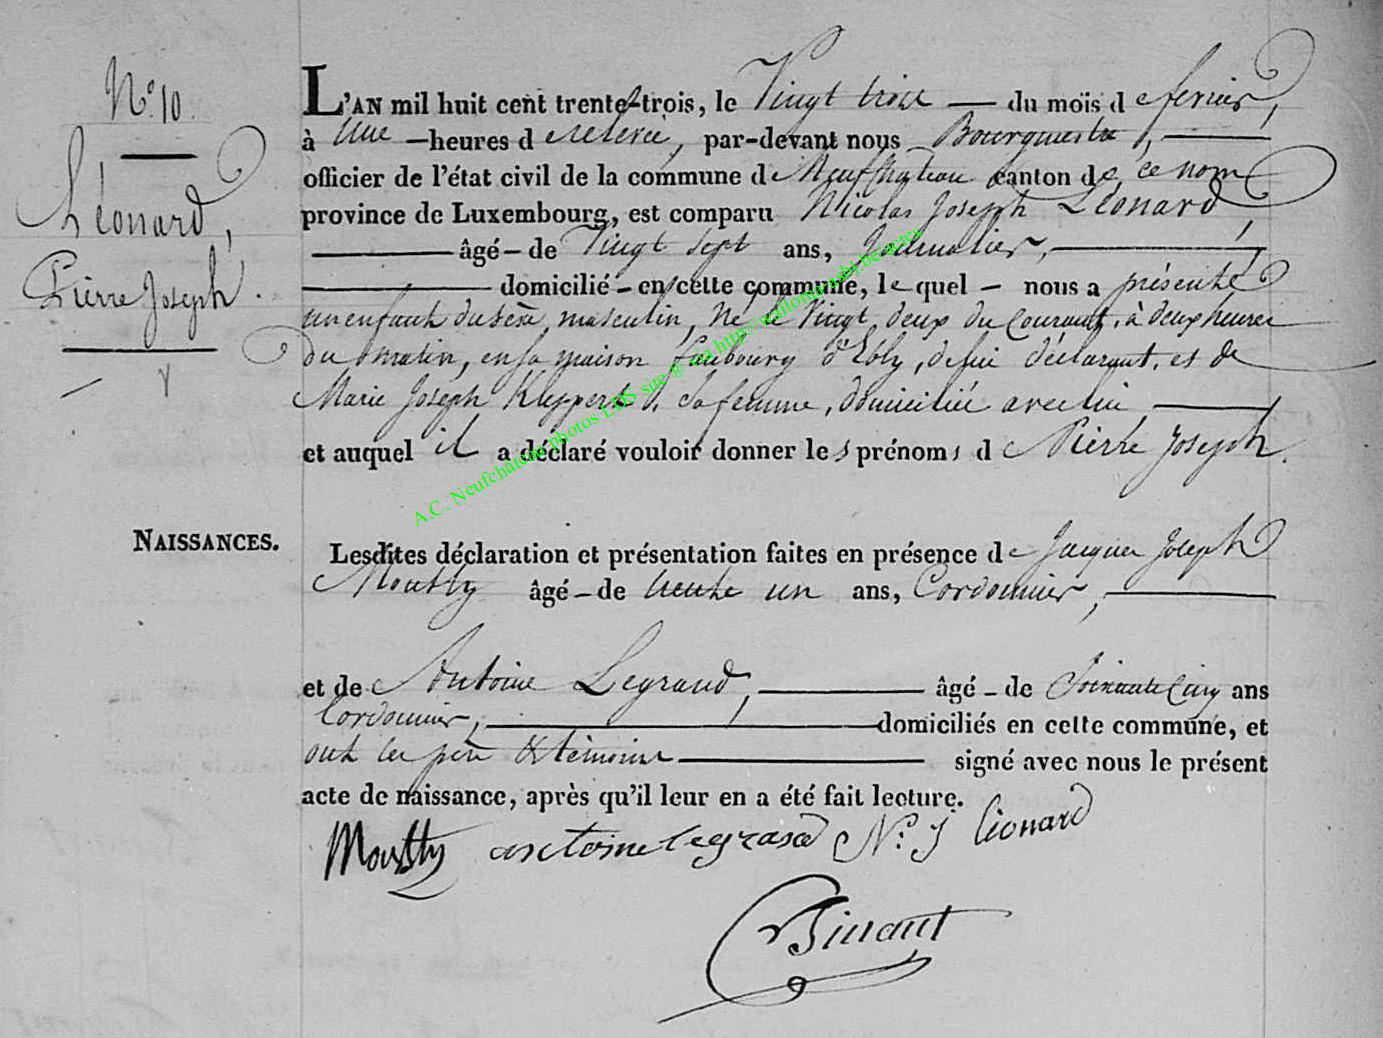 N.° 10.
Léonard,
Pierre Joseph.
L'AN mil huit cent trente-trois, le Vingt trois du mois de fevrier,
à Une heures de relevée, par-devant nous Bourguemestre,
officier de l'état civil de la commune de Neufchateau canton de ce nom
province de Luxembourg, est comparu Nicolas Joseph Léonard,
âgé de Vingt sept ans, Journalier,
domicilié en cette commune, lequel nous a présenté
un enfant du sexe masculin, Né le Vingt deux du courant, à deux heures
du matin, en sa maison faubourg d'Ebly, de lui déclarant, et de
Marie Joseph Kleppert, Sa femme, domiciliée avec lui
et auquel il a déclaré vouloir donner les prénoms de Pierre Joseph.
NAISSANCES.
Lesdites déclaration et présentation faites en présence de Jacques Joseph
Moustty âgé de trente un ans, Cordonnier,
et de Antoine Legrand, âgé de Soixante Cinq ans
Cordonnier, domiciliés en cette commune, et
ont les père & témoins signé avec nous le présent
acte de naissance, après qu'il leur en a été fait lecture.
Moustty antoine legrand N. J léonard
A.C. Neufchâteau photos LDS site @ via http://wallonia.asbl.be/actes